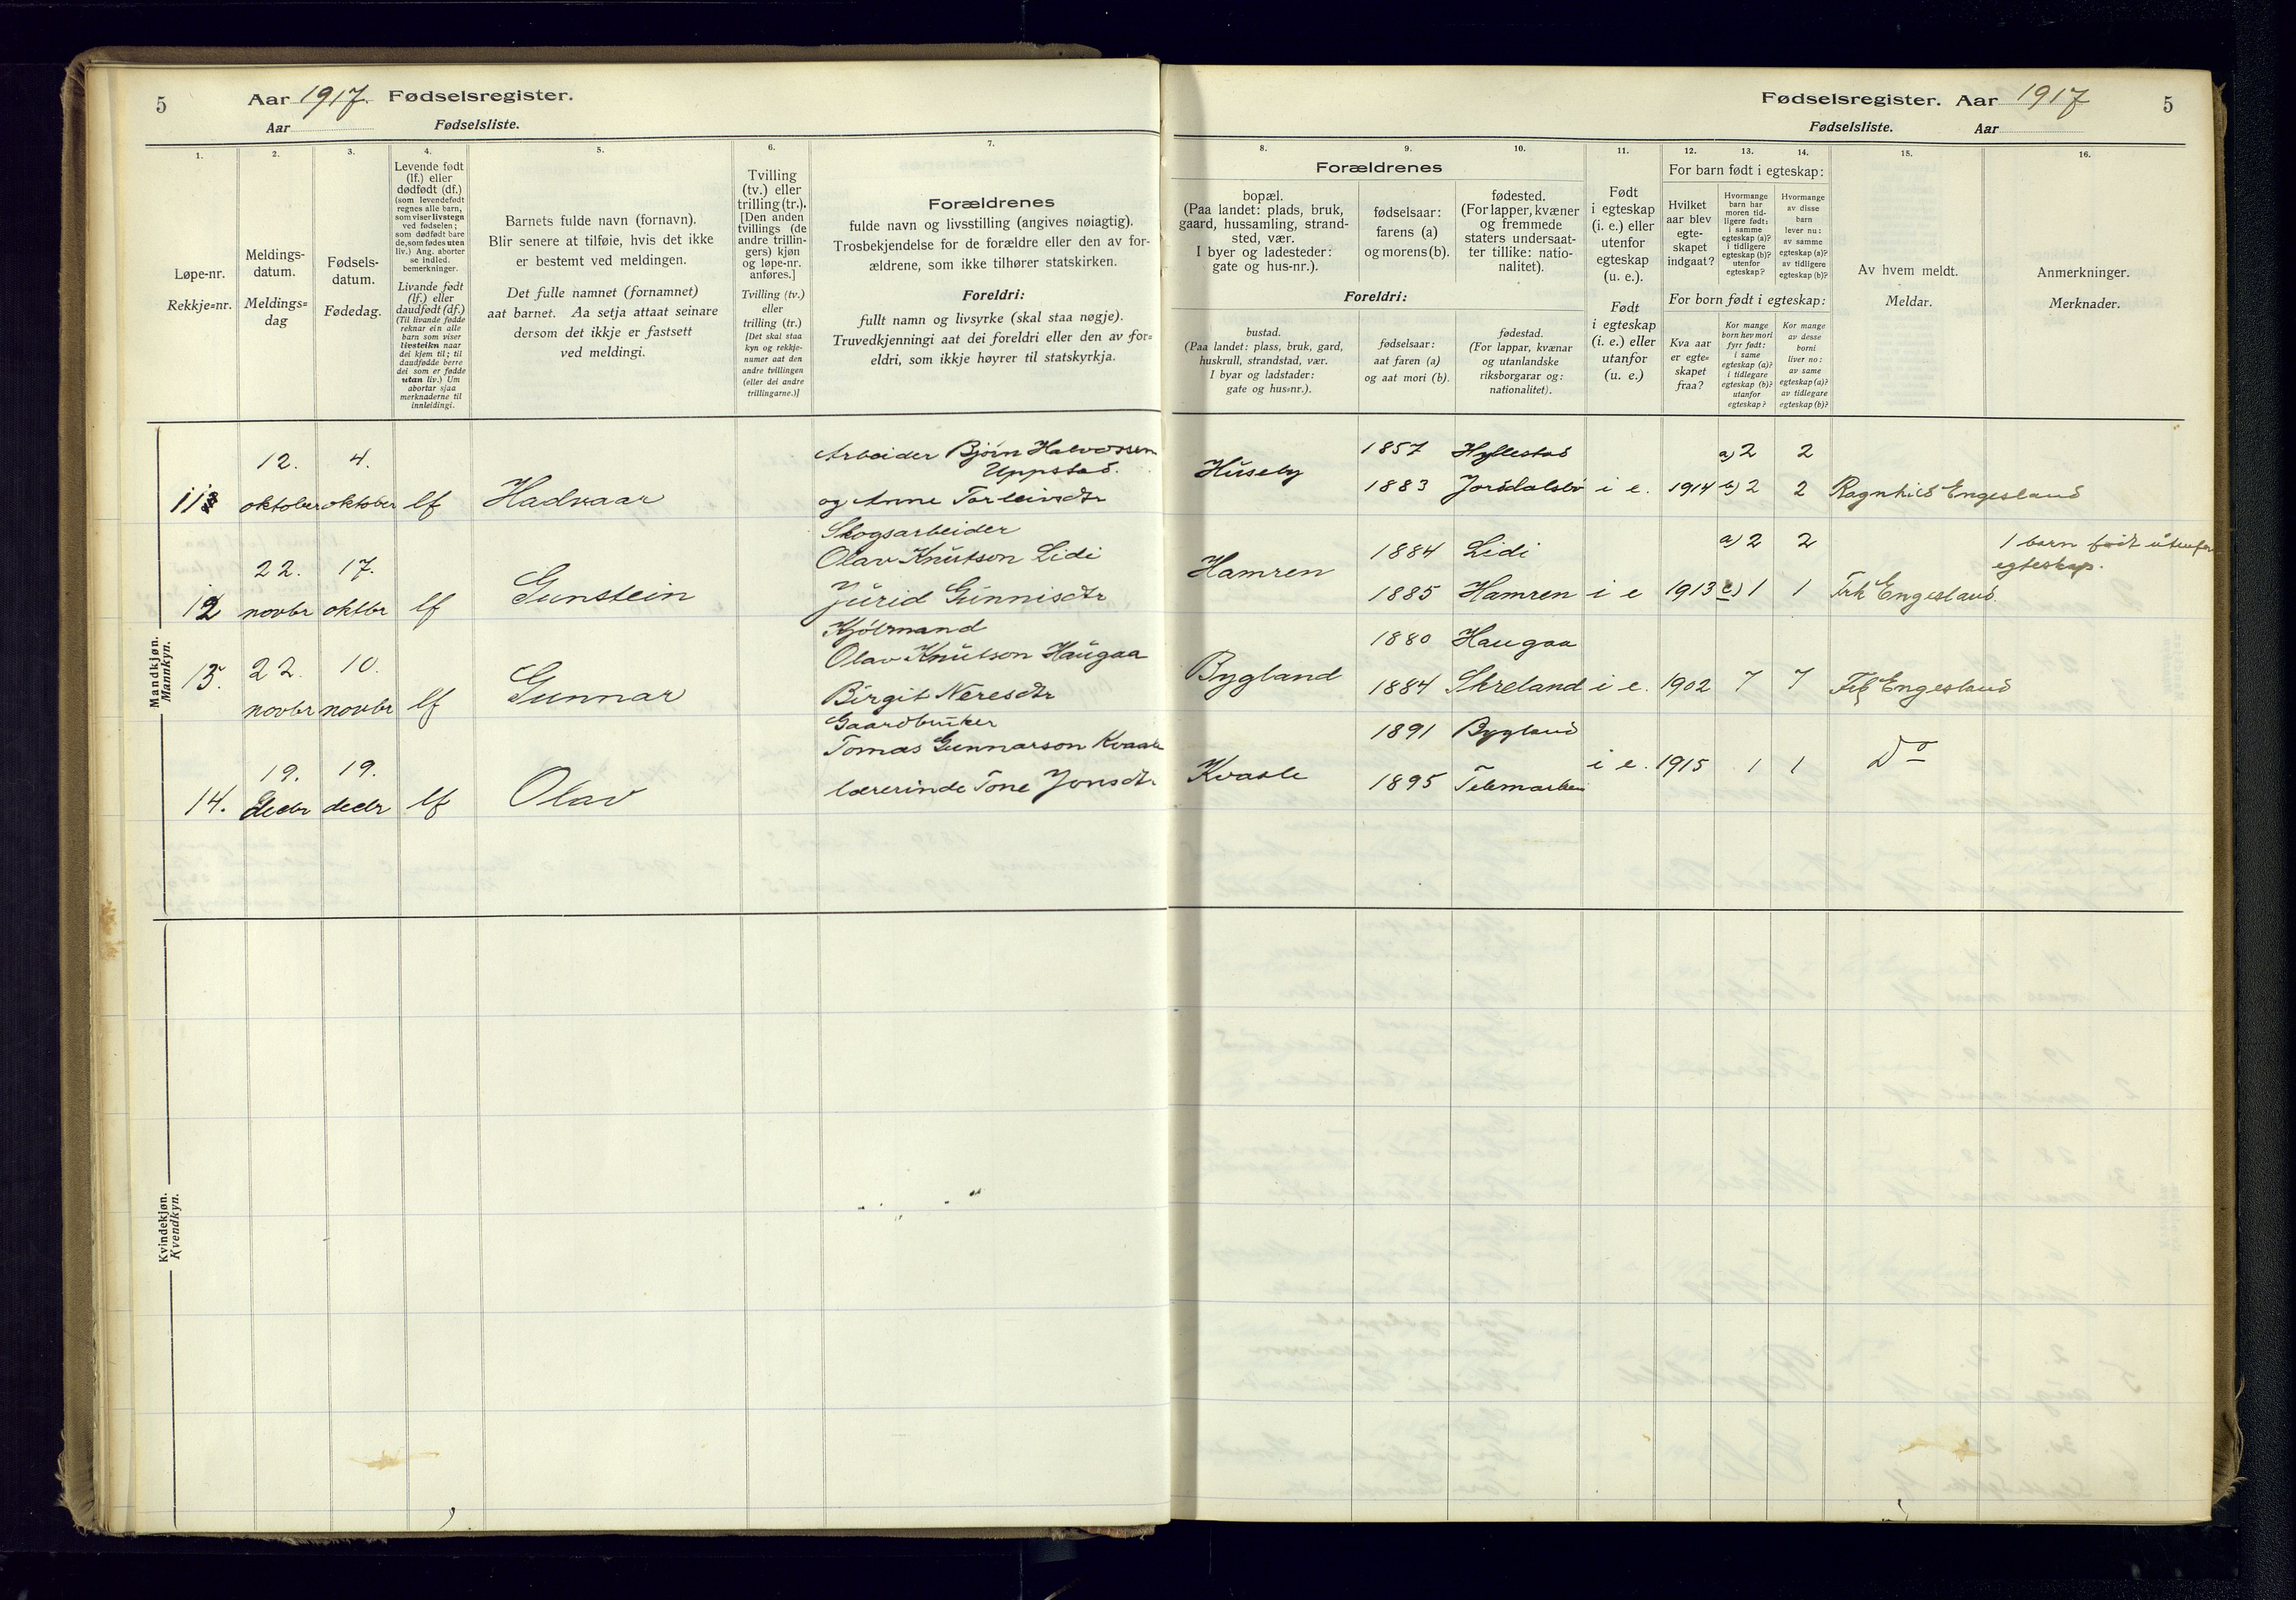 5 Aar 1917. Fødselsregister.
Aar Fødselsliste.
Fødselsregister. Aar 1917 5
Fødselsliste. Aar
1.
Løpe-nr.
Rekkje=nr.
2.
Meldings-
datum.
Meldings=
dag
3.
Fødsels-
datum.
Fødedag.
4.
Levende født
(lf.) eller
dødfødt (df.)
(som levendefødt
regnes alle barn,
som viser livstegn
ved fødselen;
som dødfødt bare
de, som fødes uten
liv.) Ang. aborter
se indled.
bemerkninger.
Livande født
(lf.) eller
daudfødt (df.)
(Til livande fødde
reknar ein alle
barn som viser
livsteikn naar
dei kjem til; til
daudfødde berre
dei som er fødde
utan liv.) Um
abortar sjaa
merknaderne til
innleidingi.
5.
Barnets fulde navn (fornavn).
Blir senere at tilføie, hvis det ikke
er bestemt ved meldingen.
Det fulle namnet (fornamnet)
aat barnet. Aa setja attaat seinare
dersom det ikkje er fastsett
ved meldingi.
6.
Tvilling
(tv.) eller
trilling (tr.).
[Den anden
tvillings (de
andre trillin-
gers) kjøn
og løpe-nr.
anføres.]
Tvilling (tv.)
eller
trilling (tr.)
[Det skal staa
kyn og rekkje-
numer aat den
andre tvillingen
(eller dei andre
trillingarne.)]
7.
Forældrenes
fulde navn og livsstilling (angives nøiagtig).
Trosbekjendelse for de forældre eller den av for-
ældrene, som ikke tilhører statskirken.
Foreldri:
fullt namn og livsyrke (skal staa nøgje).
Truvedkjenningi aat dei foreldri eller den av for=
eldri, som ikkje høyrer til statskyrkja.
8.
Forældrenes
bopæl.
(Paa landet: plads, bruk,
gaard, hussamling, strand-
sted, vær.
I byer og ladesteder:
gate og hus-nr.).
Foreldri:
bustad.
(Paa landet: plass, bruk, gard,
huskrull, strandstad, vær.
I byar og ladstader:
gate og hus=nr.).
9.
fødselsaar:
farens (a)
og morens (b).
fødselsaar:
aat faren (a)
og aat mori (b).
10.
fødested.
(For lapper, kvæner
og fremmede
staters undersaat-
ter tillike: natio-
nalitet).
fødestad.
(For lappar, kvænar
og utanlandske
riksborgarar og:
nationalitet).
11.
Født
i egteskap
(i. e.) eller
utenfor
egteskap
(u. e.).
Født
i egteskap
(i. e.) eller
utanfor
(u. e.)
For barn født i egteskap:
For born født i egteskap:
12.
Hvilket
aar blev
egte-
skapet
indgaat?
Kva aar
er egte=
skapet
fraa?
13.
Hvormange
barn har
moren tid-
ligere født:
i samme
egteskap (a)?
i tidligere
egteskap (b)?
utenfor
egteskap?
Kor mange
born hev mori
fyrr født:
i same
egteskap (a)?
i tidlegare
egteskap (b)?
utanfor
egteskap?
14.
Hvormange
av disse
barn
lever nu:
av samme
egteskap (a)?
av tidligere
egteskap (b)?
Kor mange
av desse
borni
liver no:
av same
egteskap (a)?
av tidlegare
egteskap (b)?
15.
Av hvem meldt.
Meldar.
16.
Anmerkninger.
Merknader.
Mandkjøn.
Mannkyn.
12. 4. Arbeider Bjørn Halvorssen
Uppstad.
11 oktober oktober lf Hadvaar og Anne Tarleivsdtr
Huseby 1857 Hyllestad a) 2 2
1883 Jordalsbø i e. 1914 b) 2 2 Ragnhild Engesland
Skogsarbeider
22. 17. Olav Knutson Lidi
12 novbr oktbr lf Gunstein Jurid Gunnisdtr
Hamren 1884 Lidi a) 2 2 1 barn født utenfor
egteskap.
1885 Hamren i e 1913 c) 1 1 Frk Engesland.
Kjølmand
13. 22. 10. Olav Knutson Haugaa
novbr novbr lf Gunnar Birgit Neresdtr
1880 Haugaa
Bygland 1884 Skreland i e. 1902 7 7 Frk Engesland
Gaardbruker
19. 19. Tomas Gunnarson Kvaale
14. decbr decbr lf Olav lærerinde Tone Jonsdtr
1891 Bygland
Kvaale 1895 Telemarken i e. 1915 1 1 Do
Kvindekjøn.
Kvendkyn.